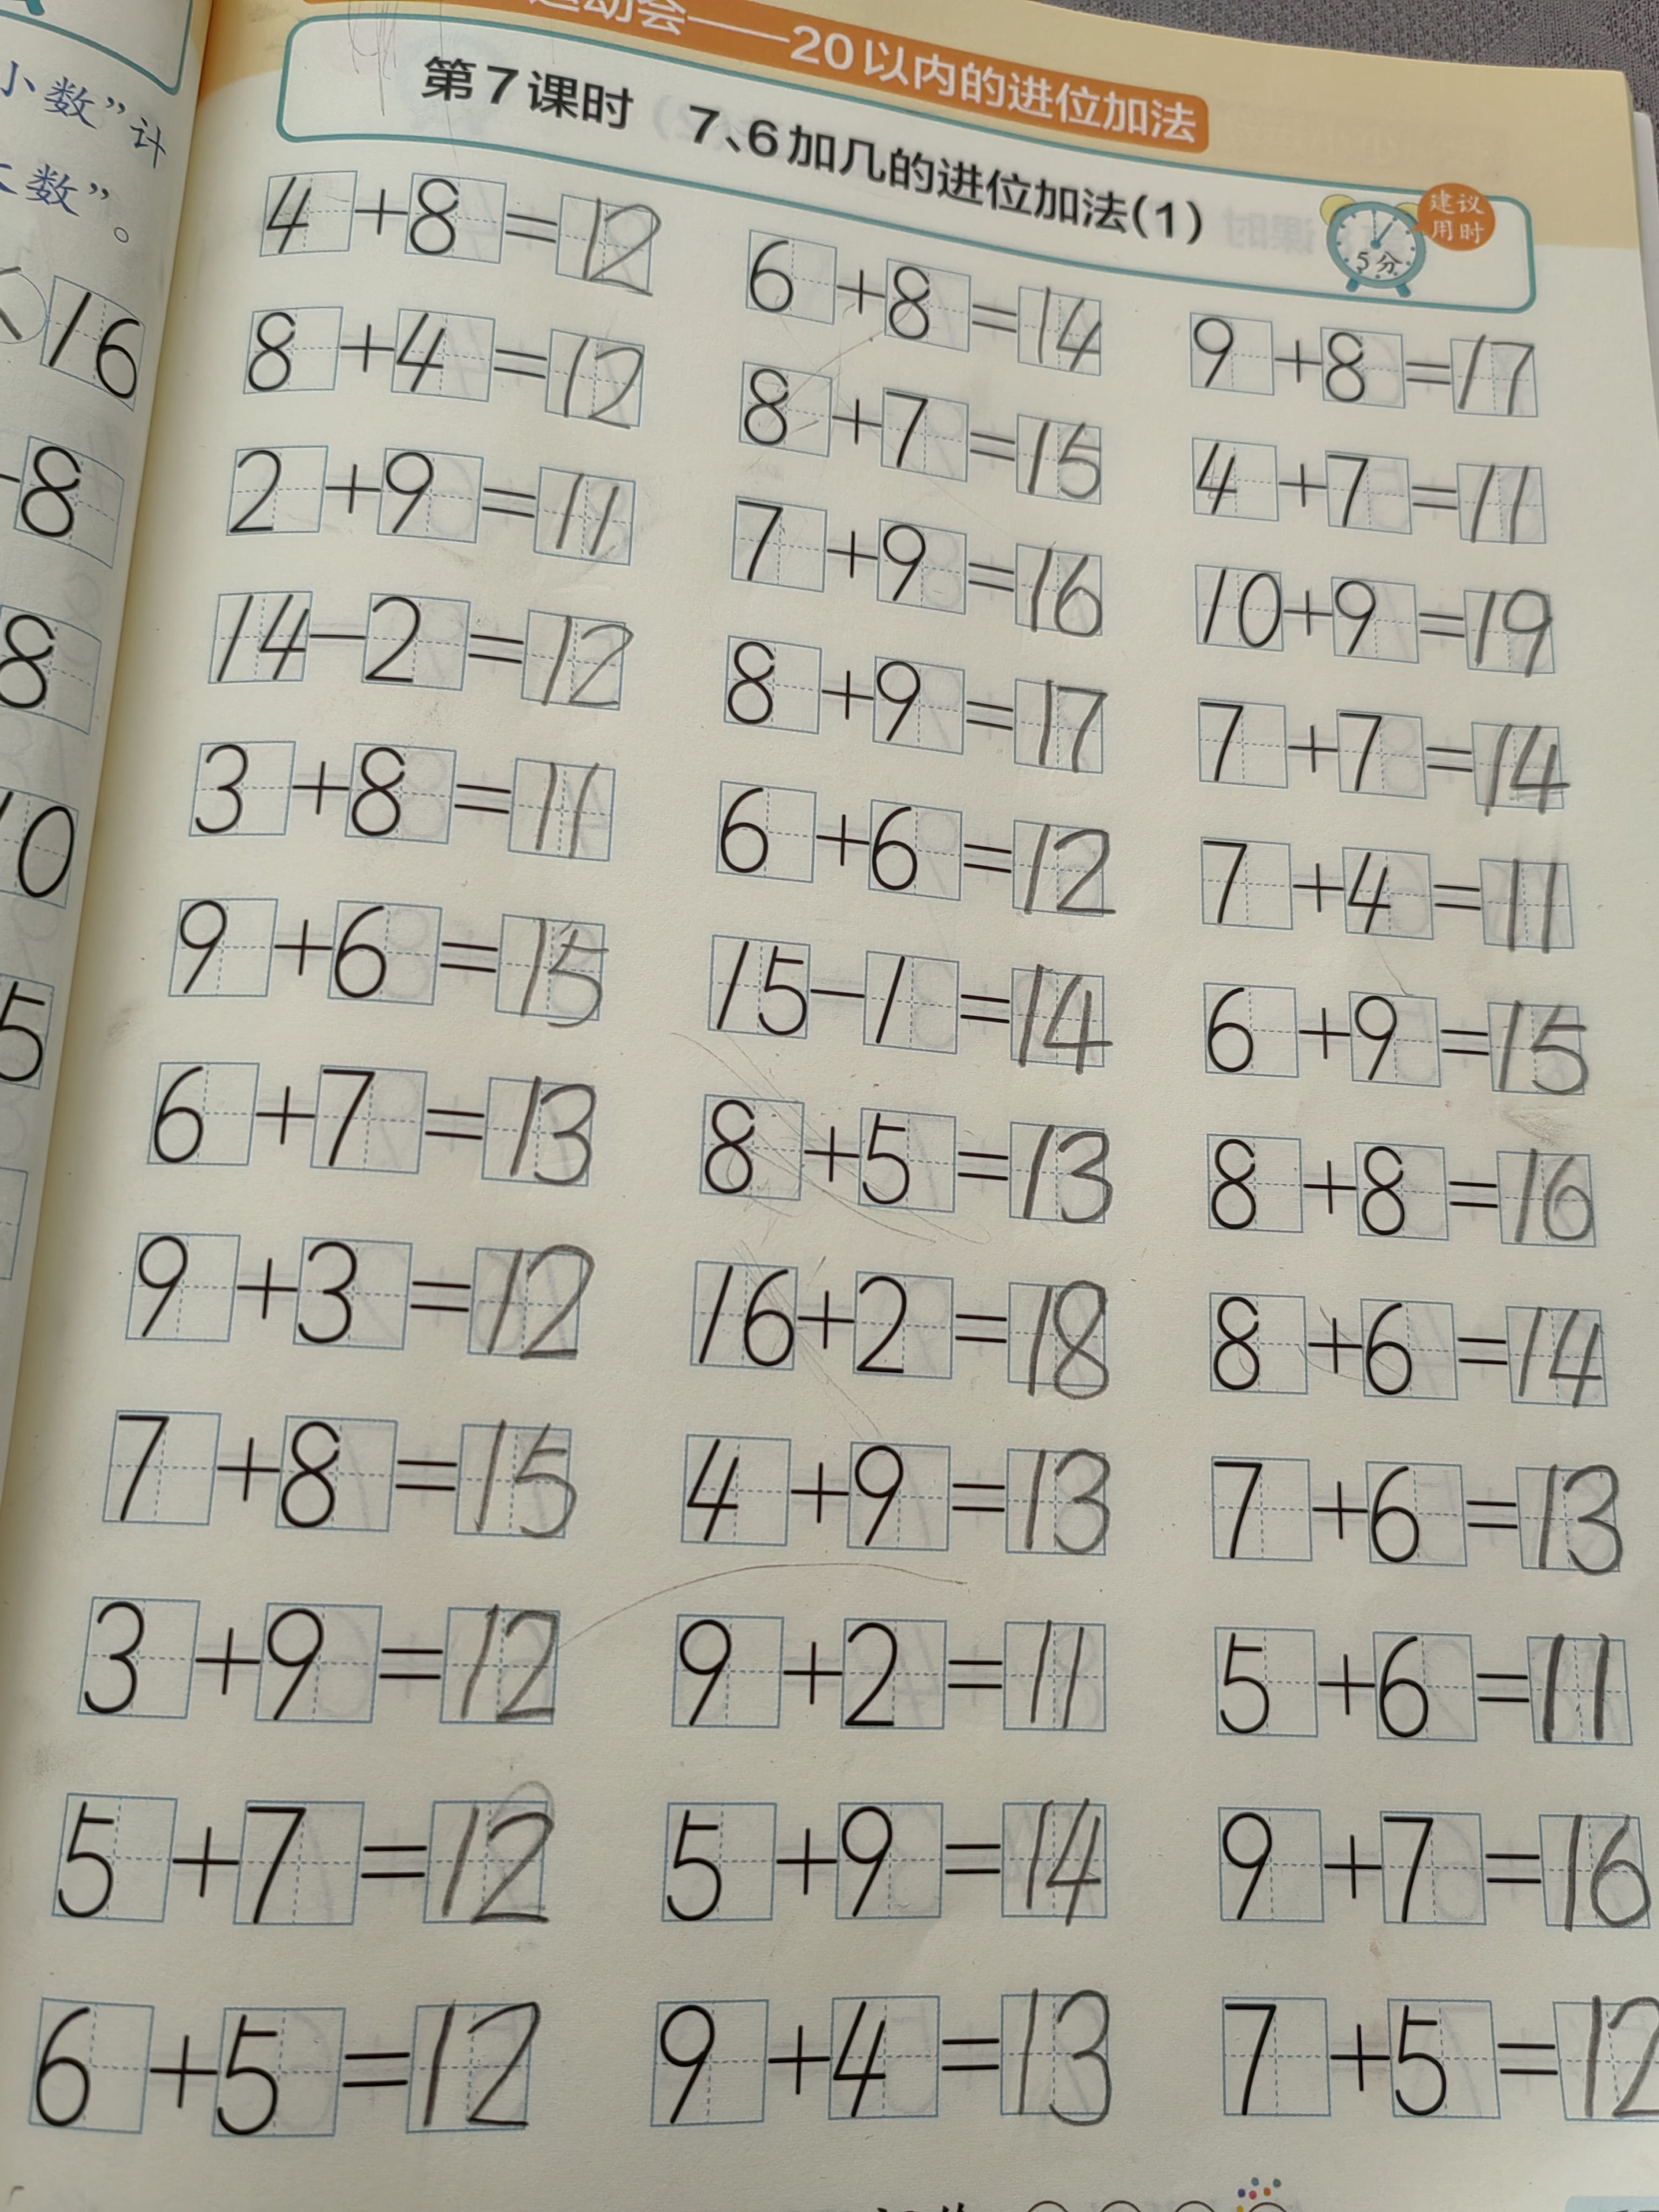 运动会——20以内的进位加法
第7课时 7、6加几的进位加法(1)
建议
用时
5分
4+8=12
8+4=12
2+9=11
14-2=12
3+8=11
9+6=15
6+7=13
9+3=12
7+8=15
3+9=12
5+7=12
6+5=12
6+8=14
8+7=15
7+9=16
8+9=17
6+6=12
15-1=14
8+5=13
16+2=18
4+9=13
9+2=11
5+9=14
9+4=13
9+8=17
4+7=11
10+9=19
7+7=14
7+4=11
6+9=15
8+8=16
8+6=14
7+6=13
5+6=11
9+7=16
7+5=12
小数”计
数”。
16
8
8
10
5